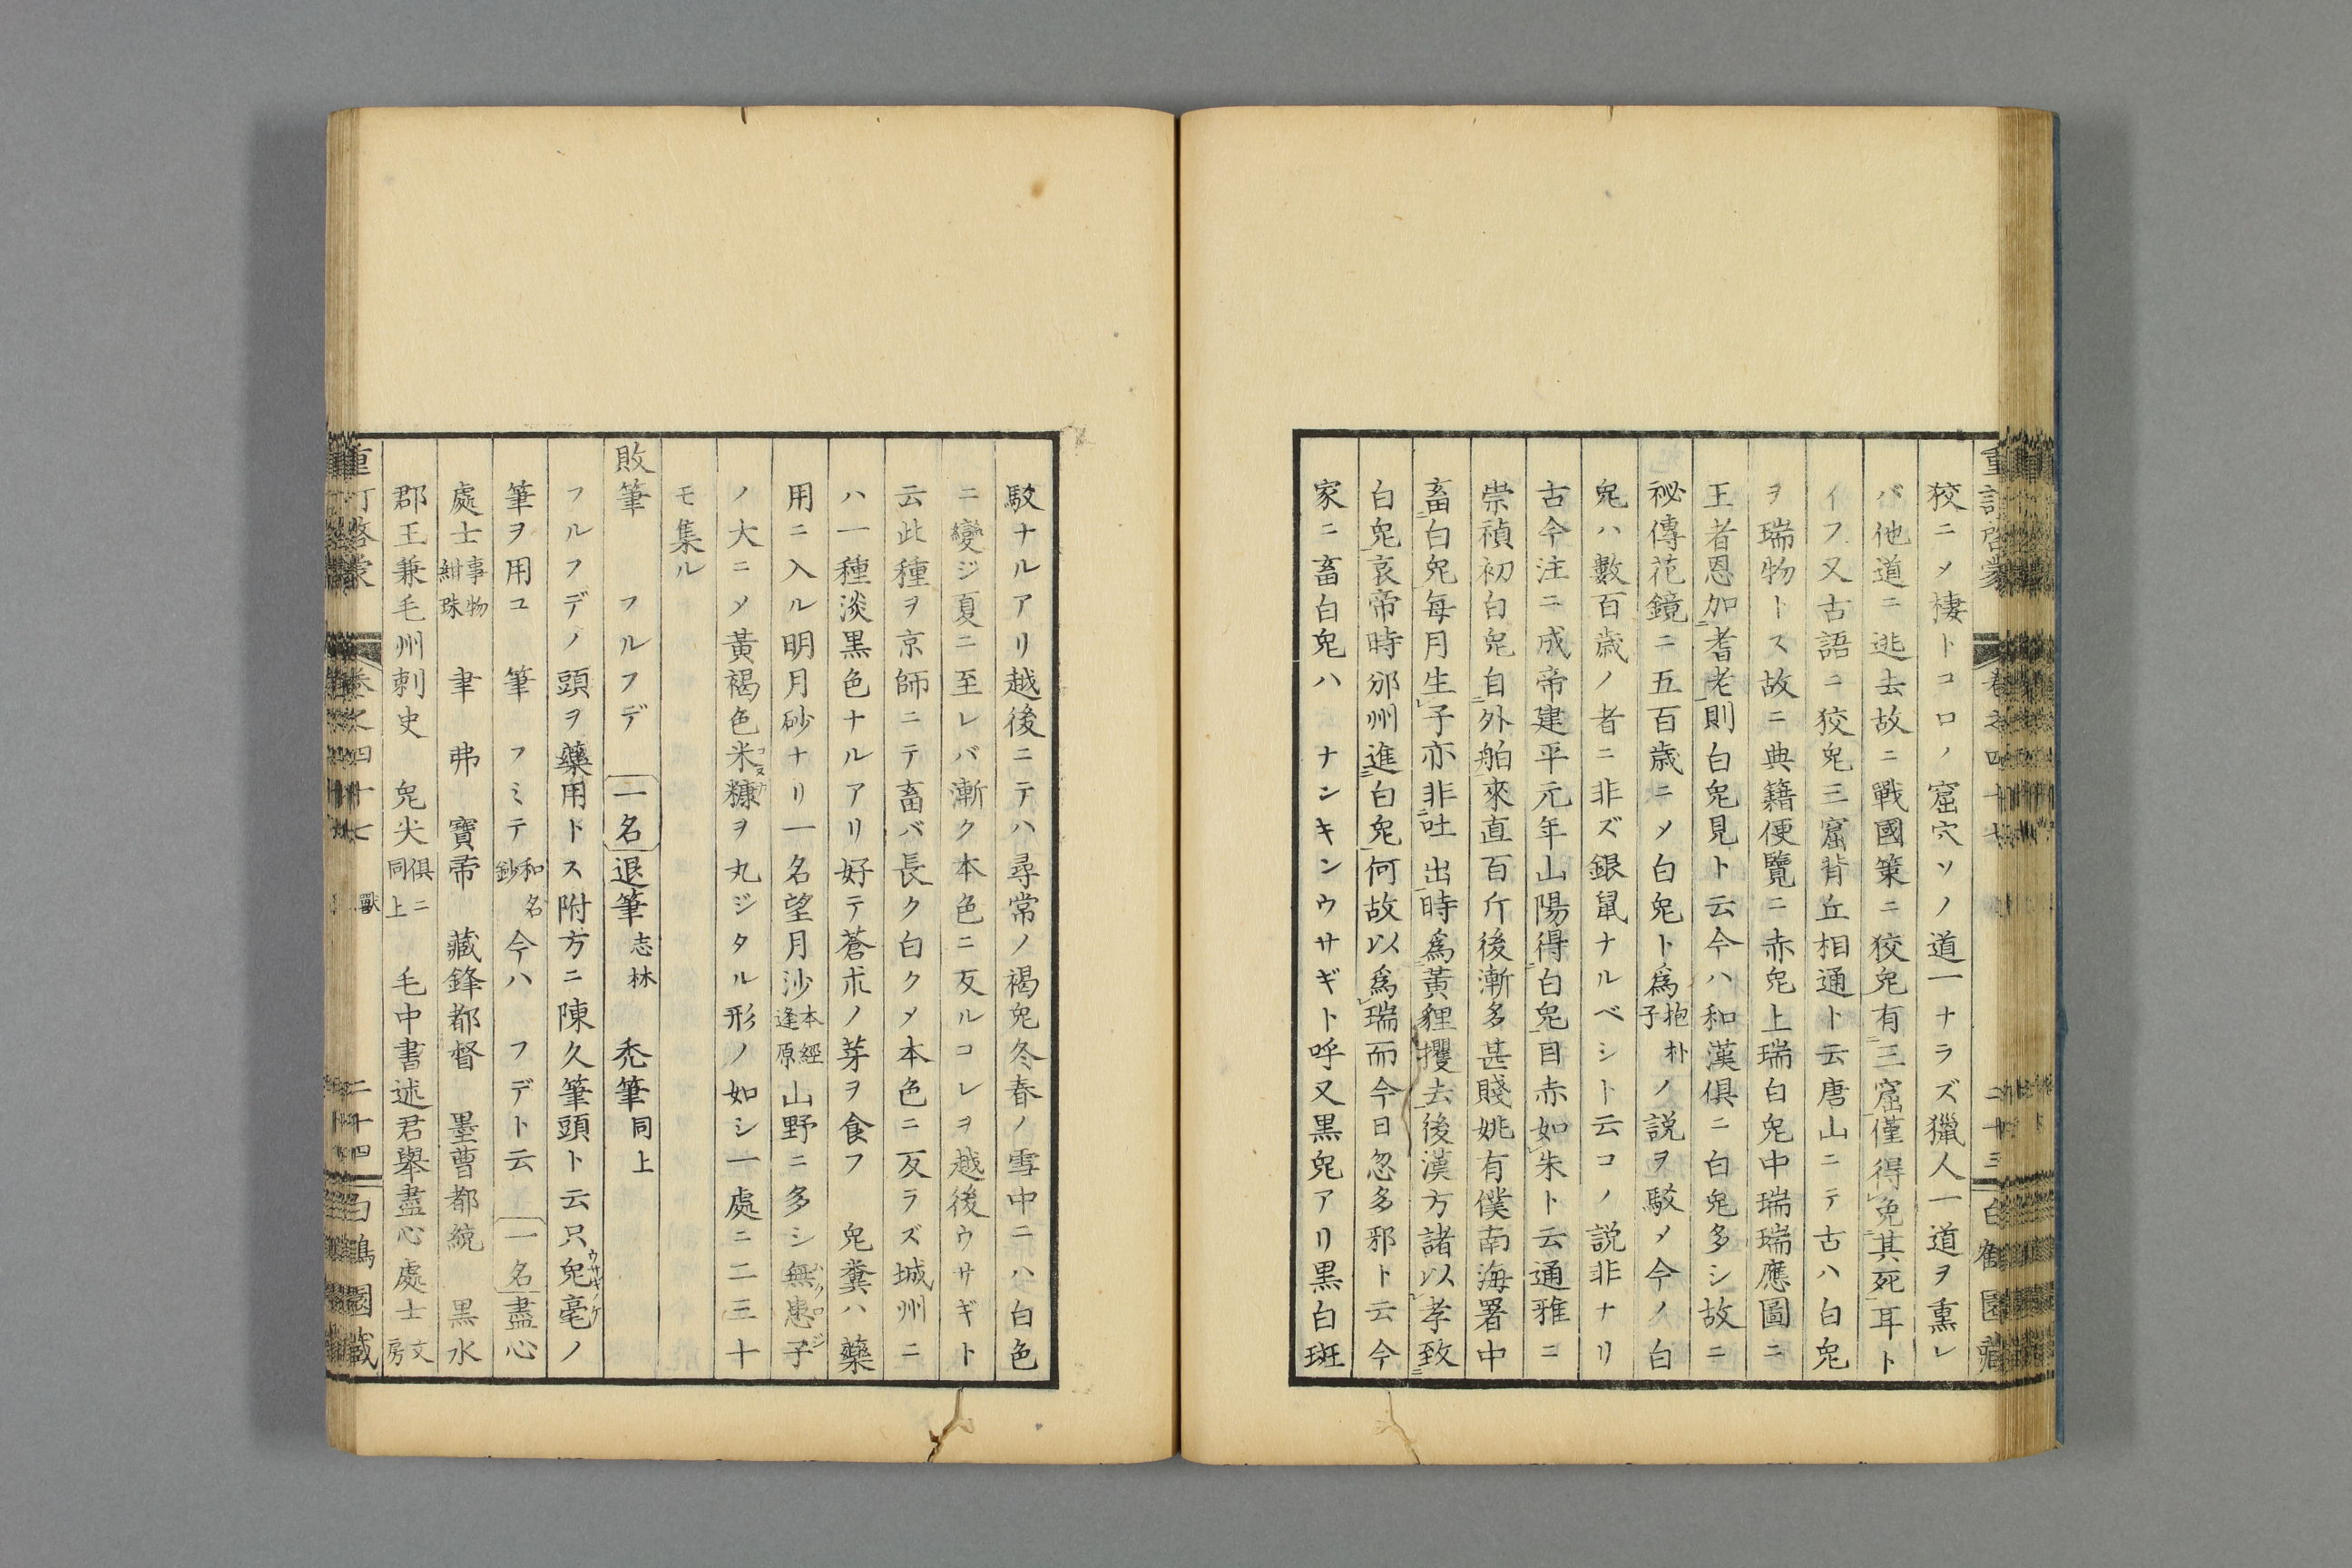 狡ニメ棲トコロノ窟穴ソノ道一ナラズ獵人一道ヲ熏レ
バ他道ニ逃去故ニ戰國策ニ狡兔有三窟僅得免其死耳ト
イフ又古語ニ狡兔三窟背丘相通ト云唐山ニテ古ハ白兔
ヲ瑞物トス故ニ典籍便覽ニ赤兔上瑞白兔中瑞瑞應圖ニ
王者恩加耆老則白兔見ト云今ハ和漢俱ニ白兔多シ故ニ
祕傳花鏡ニ五百歳ニメ白兔ト爲抱朴子ノ説ヲ駁メ今ノ白
兔ハ數百歳ノ者ニ非ズ銀鼠ナルベシト云コノ説非ナリ
古今注ニ成帝建平元年山陽得白兔目赤如朱ト云通雅ニ
崇禎初白兔自外舶來直百斤後漸多甚賤姚有僕南海署中
畜白兔每月生子亦非吐出時爲黃狸攫去後漢方諸以孝致
白兔哀帝時邠州進白兔何故以爲瑞而今日忽多邪ト云今
家ニ畜白兔ハ ナンキンウサギト呼又黒兔アリ黒白斑
駁ナルアリ越後ニテハ尋常ノ褐兔冬春ノ雪中ニハ白色
ニ變ジ夏ニ至レバ漸ク本色ニ反ルコレヲ越後ウサギト
云此種ヲ京師ニテ畜バ長ク白クメ本色ニ反ラズ城州ニ
ハ一種淡黒色ナルアリ好テ蒼朮ノ芽ヲ食フ 兔糞ハ藥
用ニ入ル明月砂ナリ一名望月沙本經逢原山野ニ多シ無患子
ノ大ニメ黃褐色米糠ヲ丸ジタル形ノ如シ一處ニ二三十
モ集ル
敗筆 フルフデ 一名退筆志林 禿筆同上
フルフデノ頭ヲ藥用トス附方ニ陳久筆頭ト云只兔毫ノ
筆ヲ用ユ 筆 フミテ和名鈔今ハ フデト云 一名盡心
處士事物紺珠 聿 弗 寶帚 藏鋒都督 墨曹都統 黒水
郡王兼毛州刺史 兔尖俱ニ同上 毛中書述君舉盡心處士文房